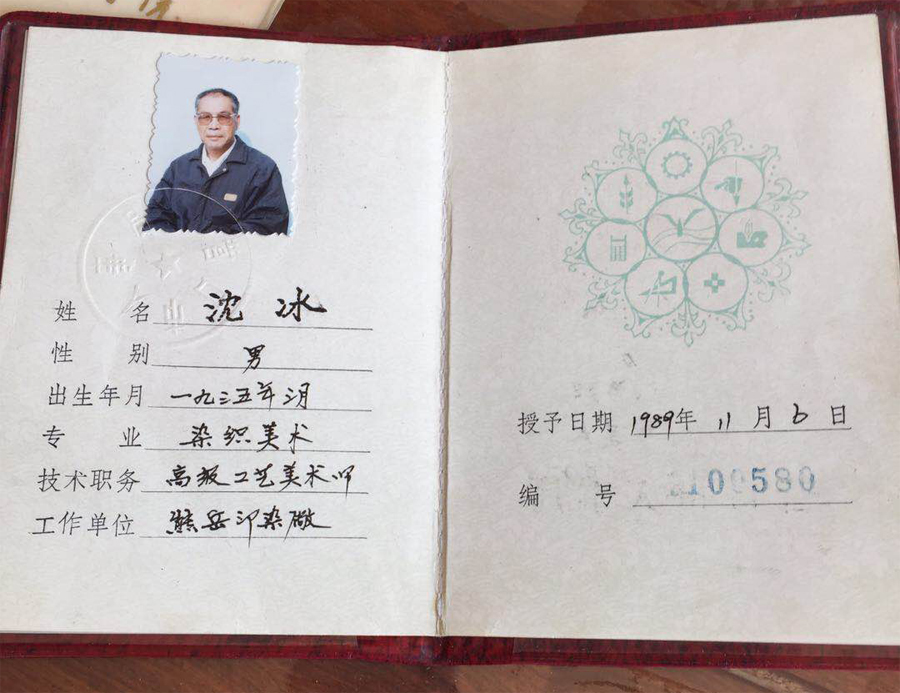 姓名 沈冰
性别 男
出生年月 一九三五年三月
专业 染织美术
技术职务 高级工艺美术师
工作单位 印染厰
授予日期 1989年 11月 6日
编号 100580